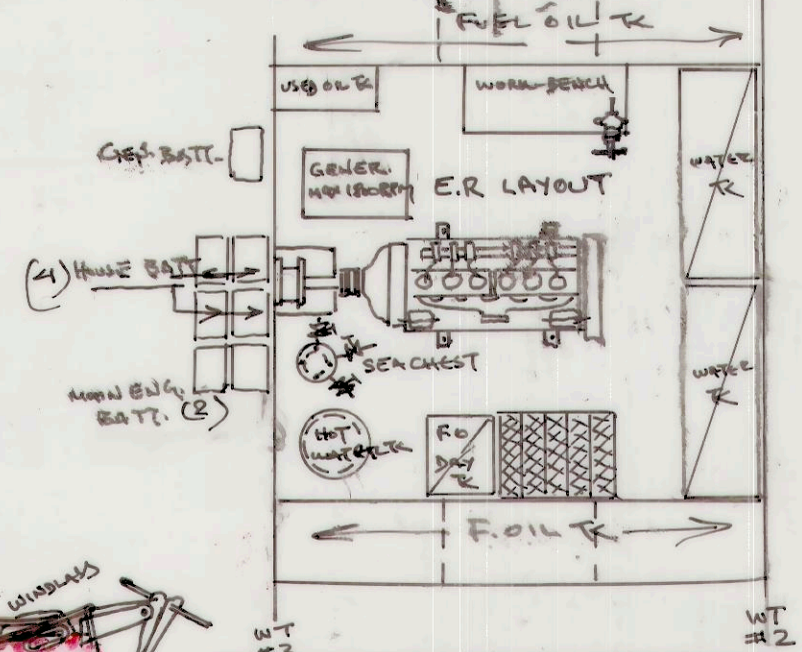 FUEL OIL TK
USED OIL TK
WORK-BENCH
GEN. BATT.
GENER.
MAX 1800 RPM
E.R LAYOUT
WATER
TK
(4) HOUSE BATT
SEA CHEST
MAIN ENG.
BATT. (2)
WATER
TK
HOT
WATER TK
F.O
DAY
TK
F.OIL TK
WINDLASS
WT
#2
WT
#2